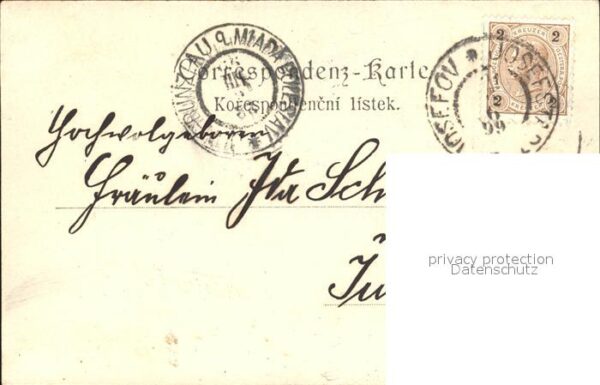 JUNGBUNZLAU * MLADÁ BOLESLAV *
Correspondenz-Karte.
Korespondenční lístek.
2 KREUZER 2
2 2
JOSEFOV * JOSEFSTADT
99
Hochwolgeboren
Fräulein Ida Sch
Ju
privacy protection
Datenschutz